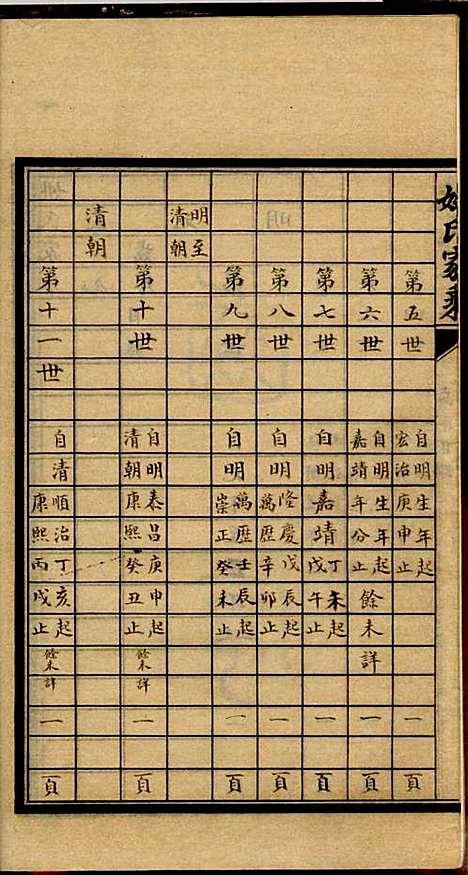 姚氏家乘
第五世 自明生年起 宏治庚申止 一頁
第六世 自明生年起 嘉靖年分止 餘未詳 一頁
第七世 自明嘉靖丁未起 戊午止 一頁
第八世 自明隆慶戊辰起 萬歷辛卯止 一頁
第九世 自明萬歷壬辰起 崇正癸未止 一頁
明至清朝
第十世 自明泰昌庚申起 清朝康熙癸丑止 餘未詳 一頁
清朝
第十一世 自清順治丁亥起 康熙丙戌止 餘未詳 一頁